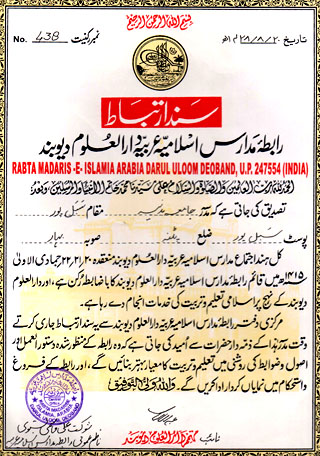 بسم اللہ الرحمن الرحیم
No. 438 نمبر رکنیت
تاریخ ۲۸/۸/۲۰ ۱۴ھ
سند ارتباط
رابطہ مدارس اسلامیہ عربیہ دارالعلوم دیوبند
RABTA MADARIS -E- ISLAMIA ARABIA DARUL ULOOM DEOBAND, U.P. 247554 (INDIA)
الحمد للہ رب العالمین والصلوٰۃ والسلام علی سیدنا محمد خاتم الانبیاء والمرسلین، وبعد:
تصدیق کی جاتی ہے کہ مدرسہ جامعہ مدنیہ مقام سبل پور
پوسٹ سبل پور ضلع پٹنہ صوبہ بہار
کل ہند اجتماع مدارس اسلامیہ عربیہ دارالعلوم دیوبند منعقدہ ۲۰، ۲۱، ۲۲ جمادی الاولیٰ
۱۴۱۵ھ میں قائم رابطہ مدارس اسلامیہ عربیہ دارالعلوم دیوبند کا باضابطہ رکن ہے، اور دارالعلوم
دیوبند کے منہج پر اسلامی تعلیم و تربیت کی خدمات انجام دے رہا ہے۔
مرکزی دفتر رابطہ مدارس اسلامیہ عربیہ دارالعلوم دیوبند سے یہ سند ارتباط جاری کرتے
وقت مدرسہ ہذا کے ذمہ دار حضرات سے امید کی جاتی ہے کہ وہ رابطہ کے منظور شدہ دستور العمل اور
اصول و ضوابط کی روشنی میں تعلیم و تربیت کا معیار بہتر بنائیں گے، اور رابطہ کے فروغ
واستحکام میں نمایاں کردار ادا کریں گے۔ واللہ ولی التوفیق
شوکت علی قاسمی بستوی
ناظم عمومی رابطہ مدارس عربیہ
نائب مہتمم دارالعلوم دیوبند